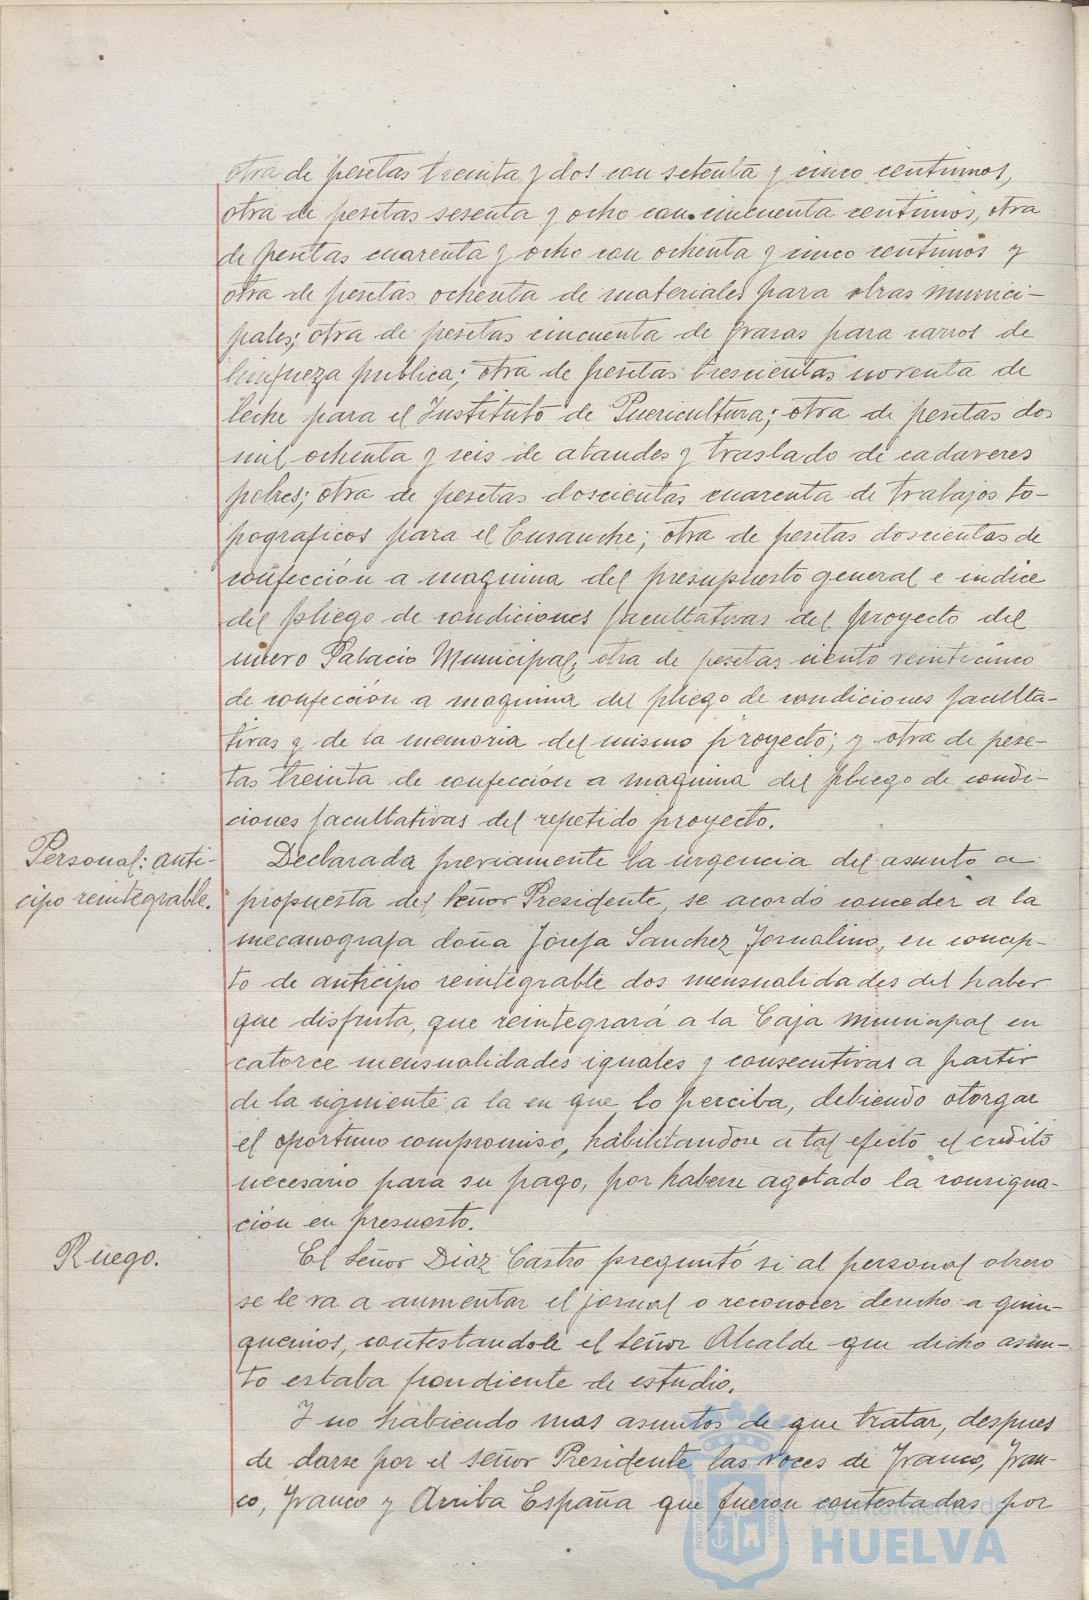 otra de pesetas treinta y dos con setenta y cinco centimos,
otra de pesetas sesenta y ocho con cincuenta centimos, otra
de pesetas cuarenta y ocho con ochenta y cinco centimos y
otra de pesetas ochenta de materiales para obras munici-
pales; otra de pesetas cincuenta de grasas para carros de
limpieza publica; otra de pesetas trescientas noventa de
leche para el Instituto de Puericultura; otra de pesetas dos
mil ochenta y seis de ataudes y traslado de cadaveres
pobres; otra de pesetas doscientas cuarenta de trabajos to-
pograficos para el Ensanche; otra de pesetas doscientas de
confección a maquina del presupuesto general e indice
del pliego de condiciones facultativas del proyecto del
nuevo Palacio Municipal; otra de pesetas ciento veinticinco
de confección a maquina del pliego de condiciones faculta-
tivas y de la memoria del mismo proyecto; y otra de pese-
tas treinta de confección a maquina del pliego de condi-
ciones facultativas del repetido proyecto.
Personal: anti-
cipo reintegrable.
Declarada previamente la urgencia del asunto a
propuesta del Señor Presidente, se acordó conceder a la
mecanografa doña Josefa Sanchez Jornalino, en concep-
to de anticipo reintegrable dos mensualidades del haber
que disfruta, que reintegrará a la Caja municipal en
catorce mensualidades iguales y consecutivas a partir
de la siguiente a la en que lo perciba, debiendo otorgar
el oportuno compromiso, habilitandose a tal efecto el credito
necesario para su pago, por haberse agotado la consigna-
ción en presuesto.
Ruego.
El Señor Diaz Castro preguntó si al personal obrero
se le va a aumentar el jornal o reconocer derecho a quin-
quenios, contestandole el Señor Alcalde que dicho asun-
to estaba pendiente de estudio.
Y no habiendo mas asuntos de que tratar, despues
de darse por el señor Presidente las voces de Franco, Fran-
co, Franco y Arriba España que fueron contestadas por
Ayuntamiento de
HUELVA